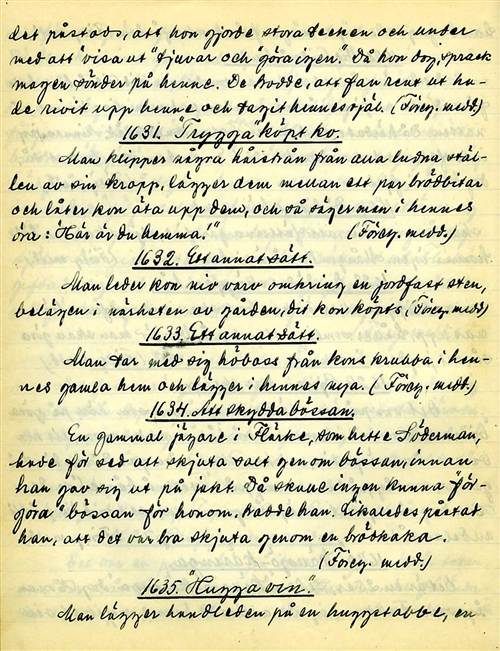 det påstads, att hon gjorde stora tecken och under
med att "visa ut" tjuvar och "göra igen". Då hon dog, sprack
magen sönder på henne. De trodde, att fan rent ut ha-
de rivit upp henne och tagit hennes själ. (Föreg. medd.)
1631. "Trygga" köpt ko.
Man klipper några hårstrån från alla ludna stäl-
len av sin kropp, lägger dem mellan ett par brödbitar
och låter kon äta upp dem, och så säger men i hennes
öra: Här är du hemma!" (Föreg. medd.)
1632. Ett annat sätt.
Man leder kon nio varv omkring en jordfast sten,
belägen i närheten av gården, dit kon köpts. (Föreg. medd)
1633. Ett annat sätt.
Man tar med sig höboss från kons krubba i hen-
nes gamla hem och lägger i hennes nya. (Föreg. medd.)
1634. Att skydda bössan.
En gammal jägare i Flärke, som hette Söderman,
hade för sed att skjuta salt genom bössan, innan
han gav sig ut på jakt. Då skulle ingen kunna "för-
göra" bössan för honom, trodde han. Likaledes påstod
han, att det var bra skjuta genom en brödkaka.
(Föreg. medd.)
1635. "Hugga vin".
Man lägger handleden på en huggstabbe, en